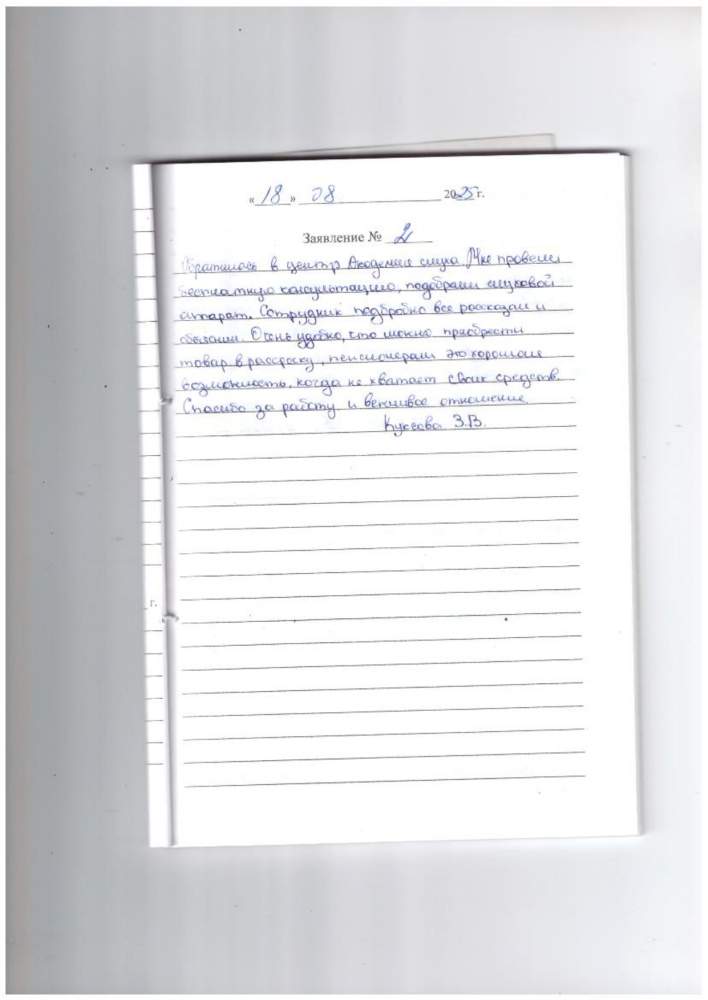 « 18 » 08 2025 г.
Заявление № 2
Обратилась в центр Академия слуха. Мне провели
бесплатную консультацию, подобрали слуховой
аппарат. Сотрудник подробно все рассказал и
объяснил. Очень удобно, что можно приобрести
товар в рассрочку, пенсионерам это хорошая
возможность, когда не хватает своих средств.
Спасибо за работу и вежливое отношение.
З.В.
г.